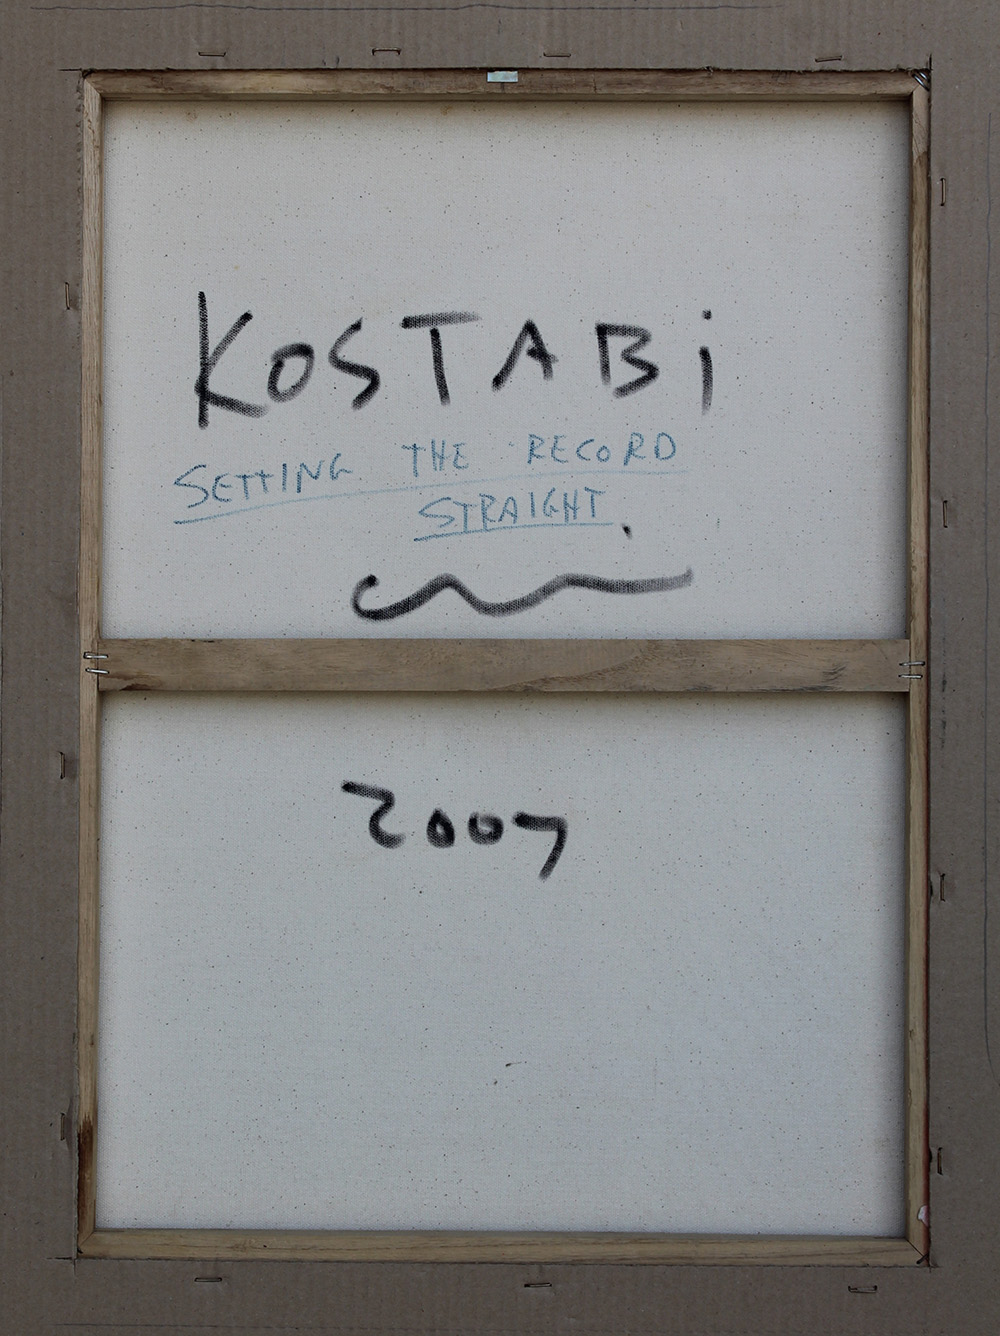 KOSTABi
SETTING THE RECORD
STRAIGHT
2007